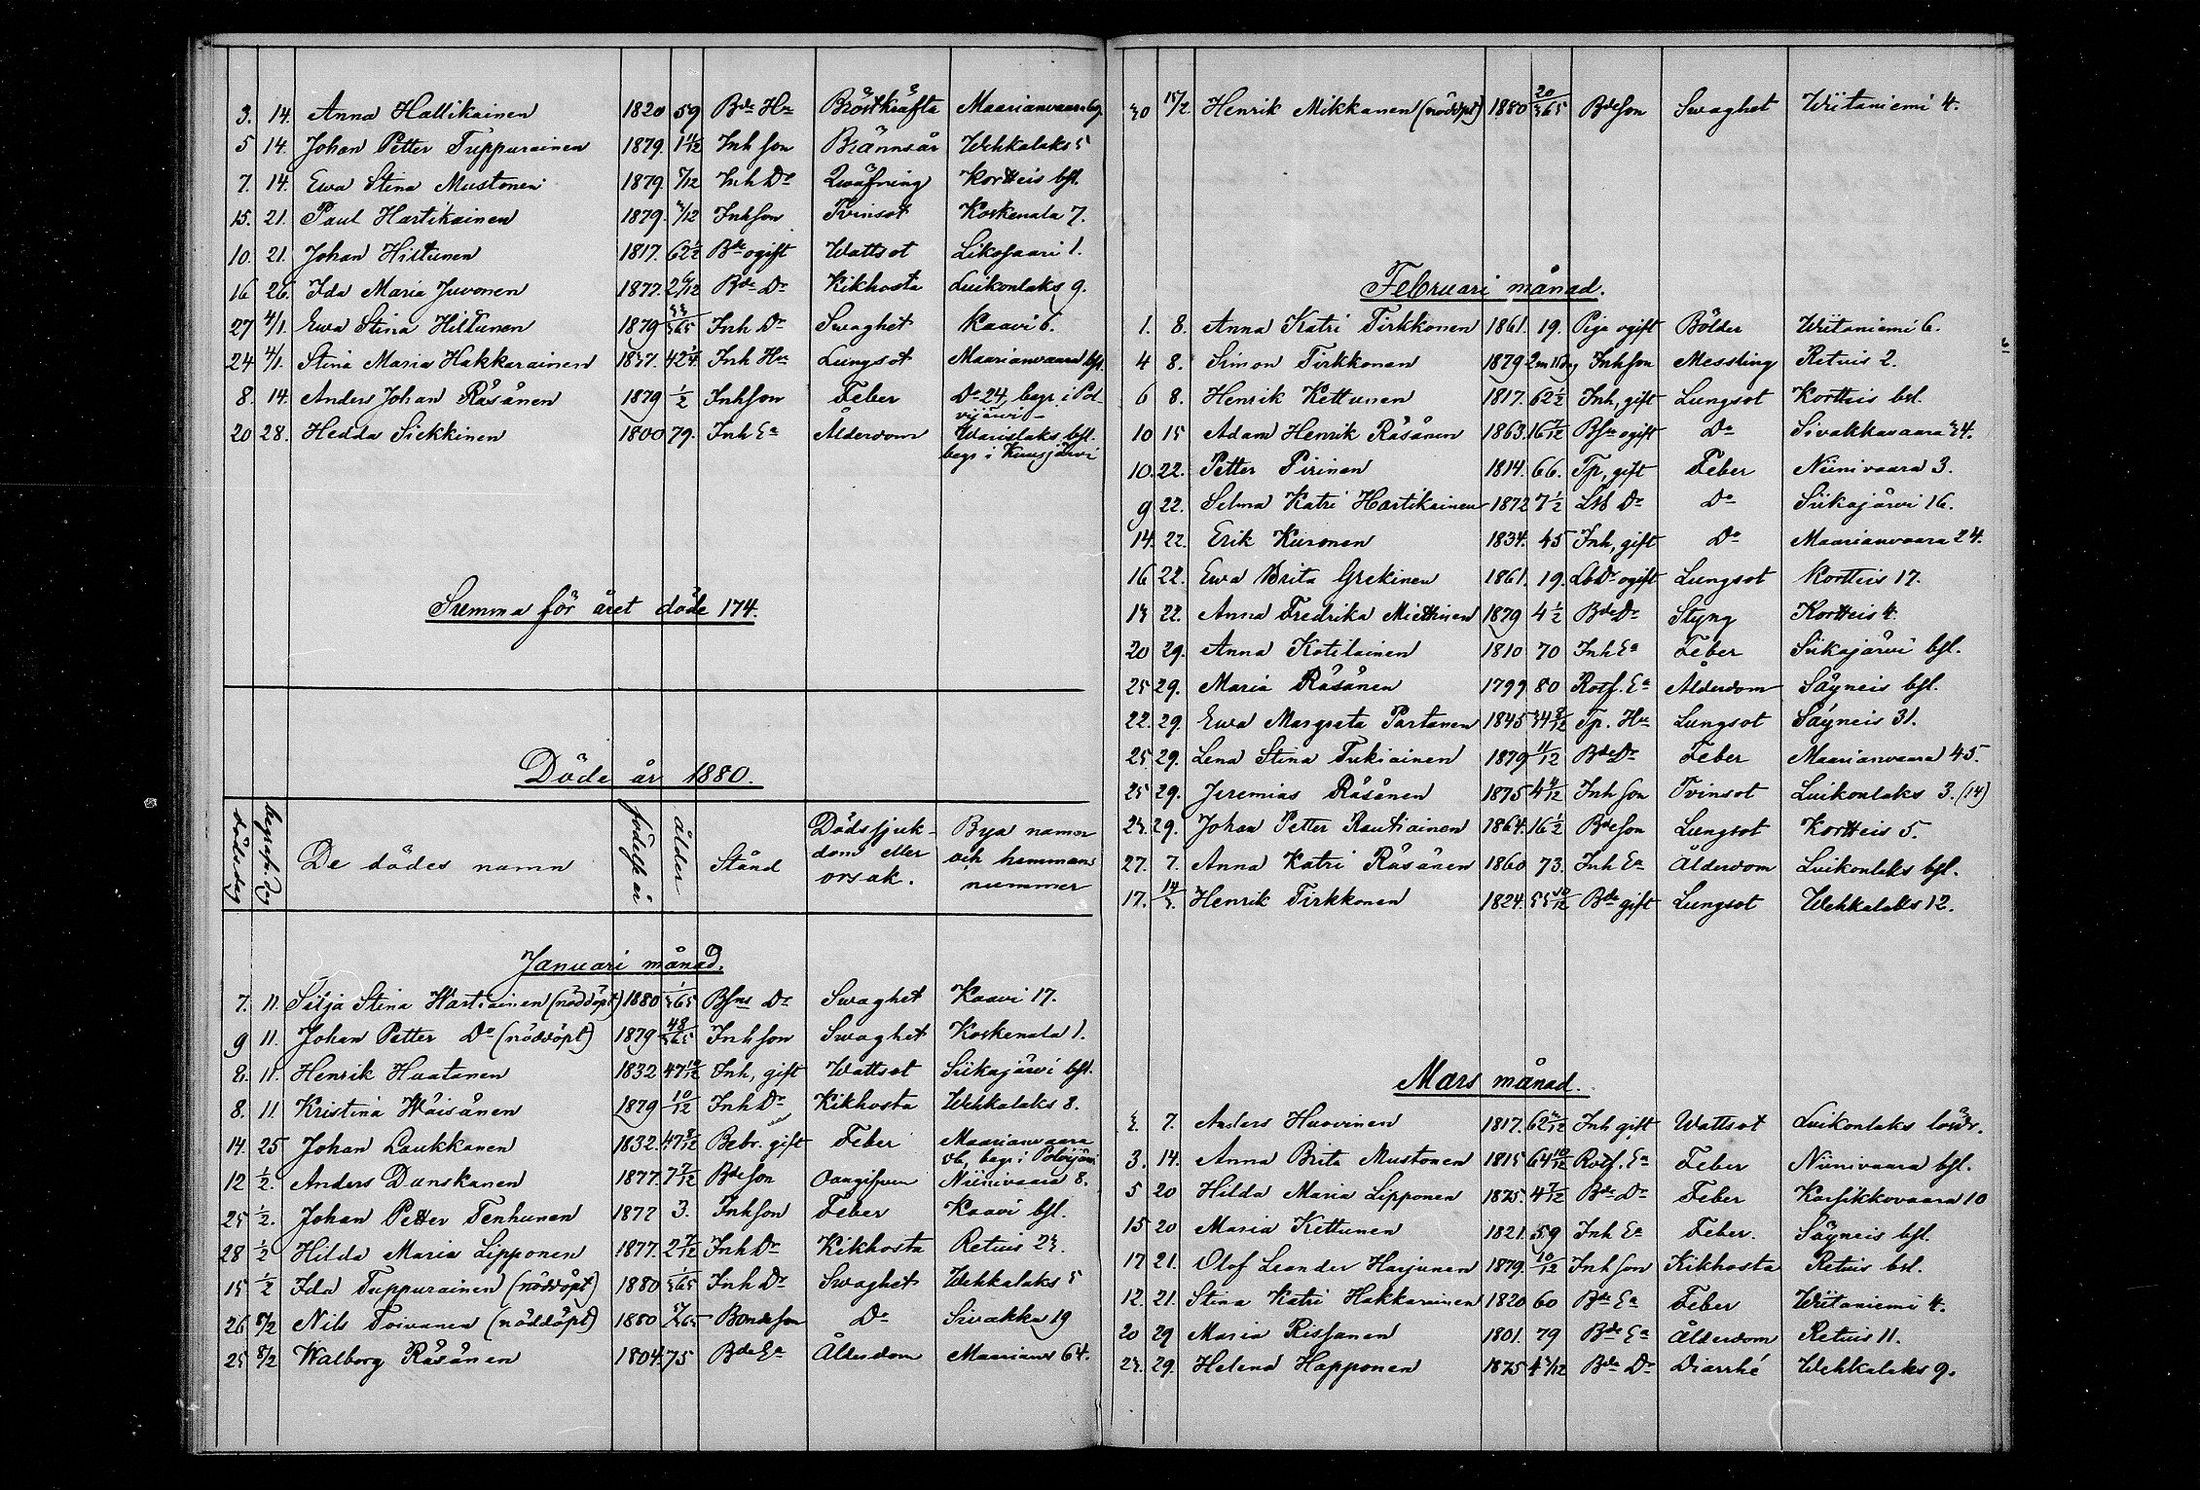 3. 14. Anna Hallikainen 1820 59 Bde Hu Bröstkräfta Maarianvaara 69.
5 14. Johan Petter Tuppurainen 1879. 1 11/12 Inh son Brännsår Wehkalaks 5
7. 14. Ewa Stina Mustonen 1879 Inh Dr Qwäfning Kortteis bfl.
15. 21. Paul Hartikainen 1879. Inhson Tvinsot Koskenala 7.
10. 21. Johan Hiltunen 1817. 62 1/2 Bde ogift Wattsot Likosaari 1.
16 26. Ida Maria Juvonen 1877. 2 6/12 Bde Dr Kikhosta Luikonlaks 9.
27 4/1. Ewa Stina Hiltunen 1879 Inh Dr Swaghet Kaavi 6.
24 4/1. Stina Maria Hakkarainen 1837. 42 1/4 Inh Hu Lungsot Maarianvaara bfl.
8. 14. Anders Johan Räsänen 1879 1/2 Inhson Feber Do 24, begr. i Pol-
vijärvi
20 28. Hedda Siekkinen 1800 79. Inh Ea Ålderdom Warislaks bfl.
begr i Kuusjärvi
Summa för året döde 174.
Döde år 1880.
dödsdag begrafn. dag De dödes namn födelseår ålder Stånd Dödssjuk-
dom eller
orsak. Bya namn
och hemmans
nummer
Januari månad.
7. 11. Silja Stina Wartiainen (nöddöpt) 1880 1/365 Bfns Dr Swaghet Kaavi 17.
9 11. Johan Petter Do (nöddöpt) 1879 48/365 Inhson Swaghet Koskenala 1.
8. 11. Henrik Huatanen 1832 47 10/12 Inh, gift Wattsot Siikajärvi bfl.
8. 11 Kristina Wäisänen 1879 10/12 Inh Dr Kikhosta Wehkalaks 8.
14. 25 Johan Laukkanen 1832. Bebr. gift Feber Maarianvaara
begr i Polvijärvi
12 1/2. Anders Danskanen 1877. Bdeson Niinivaara 8.
25 1/2. Johan Petter Tenhunen 1877 3. Inhson Feber Kaavi bfl.
28 1/2 Hilda Maria Lipponen 1877. 2 7/12 Inh Dr Kikhosta Retuis 23.
15 1/2 Ida Tuppurainen (nöddöpt) 1880 1/365 Inh Dr Swaghet Wehkalaks 5
26 8/2 Nils Toivanen (nöddöpt) 1880 Bondeson Do Siwakka 19
25 8/2 Walborg Räsänen 1804. 75 Bde Ea Ålderdom Maarianv 64.
30 15/2. Henrik Mikkanen (nöddpt) 1880 20/365 Bdeson Swaghet Wiitaniemi 4.
Februari månad.
1. 8. Anna Katri Tirkkonen 1861. 19. Piga ogift Bölder Wiitaniemi 6.
4 8. Simon Tirkkonen 1879 Inhson Messling Retuis 2.
6 8. Henrik Kettunen 1817. 62 1/2 Inh, gift Lungsot Kortteis bfl.
10 15 Adam Henrik Räsänen 1863. Bfn ogift Do Sivakkavaara 34.
10. 22. Petter Pirinen 1814. 66. Tp, gift Feber Niinivaara 3.
9 22. Selma Katri Hartikainen 1872 7 1/2 Lb Dr Do Siikajärvi 16.
14. 22. Erik Kuronen 1834. 45 Inh, gift Do Maarianvaara 24.
16 22. Ewa Brita Grekinen 1861. 19. Lb Dr ogift Lungsot Kortteis 17.
13 22. Anna Fredrika Miettinen 1879 4 1/2 Bde Dr Styng Kortteis 4.
20 29. Anna Kotilainen 1810 70 Inh Ea Feber Siikajärvi bfl.
25 29. Maria Räsänen 1799 80 Rotf. Ea Ålderdom Säyneis bfl.
22. 29. Ewa Margreta Partanen 1845 Tp. Hu Lungsot Säyneis 31.
25 29. Lena Stina Tukiainen 1879 11/12 Bde Dr Feber Maarianvaara 45.
25 29. Jeremias Räsänen 1875 Inh son Tvinsot Luikonlaks 3. (14)
23. 29. Johan Petter Rautiainen 1864. 16 1/2 Bdeson Lungsot Kortteis 5.
27. 7. Anna Katri Räsänen 1860 73. Inh Ea Ålderdom Luikonlaks bfl.
17. 14/3. Henrik Tirkkonen 1824. 55 10/12 Bde gift Lungsot Wehkalaks 12.
Mars månad.
3. 7. Anders Huovinen 1817. Inh gift Wattsot Luikonlaks
3. 14. Anna Brita Mustonen 1815 64 10/12 Rotf. Ea Feber Niinivaara bfl.
5 20 Hilda Maria Lipponen 1875. 4 7/12 Bde Dr Feber Karsikkovaara 10
15 20 Maria Kettunen 1821. 59 Inh Ea Feber. Säyneis bfl.
17 21. Olof Leander Harjunen 1879. 10/12 Inh son Kikhosta Retuis bfl.
12. 21. Stina Katri Hakkarainen 1820 60 Bde Ea Feber Wiitaniemi 4.
20 29 Maria Rissanen 1801. 79 Bde Ea Ålderdom Retuis 11.
23. 29. Helena Happonen 1875 Bde Dr Diarrhé Wehkalaks 9.